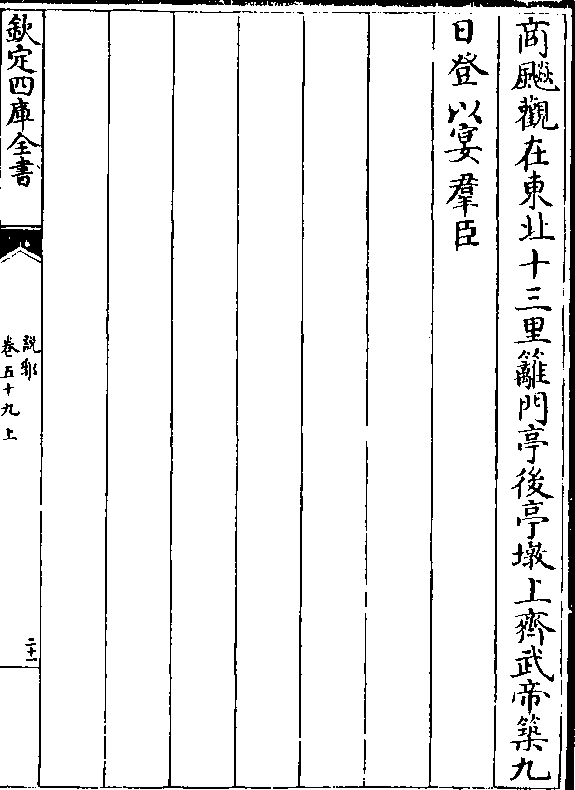 商飈觀在東北十三里籬門亭後亭墩上齊武帝築九
日登以宴羣臣
欽定四庫全書
說郛
卷五十九上
二十一